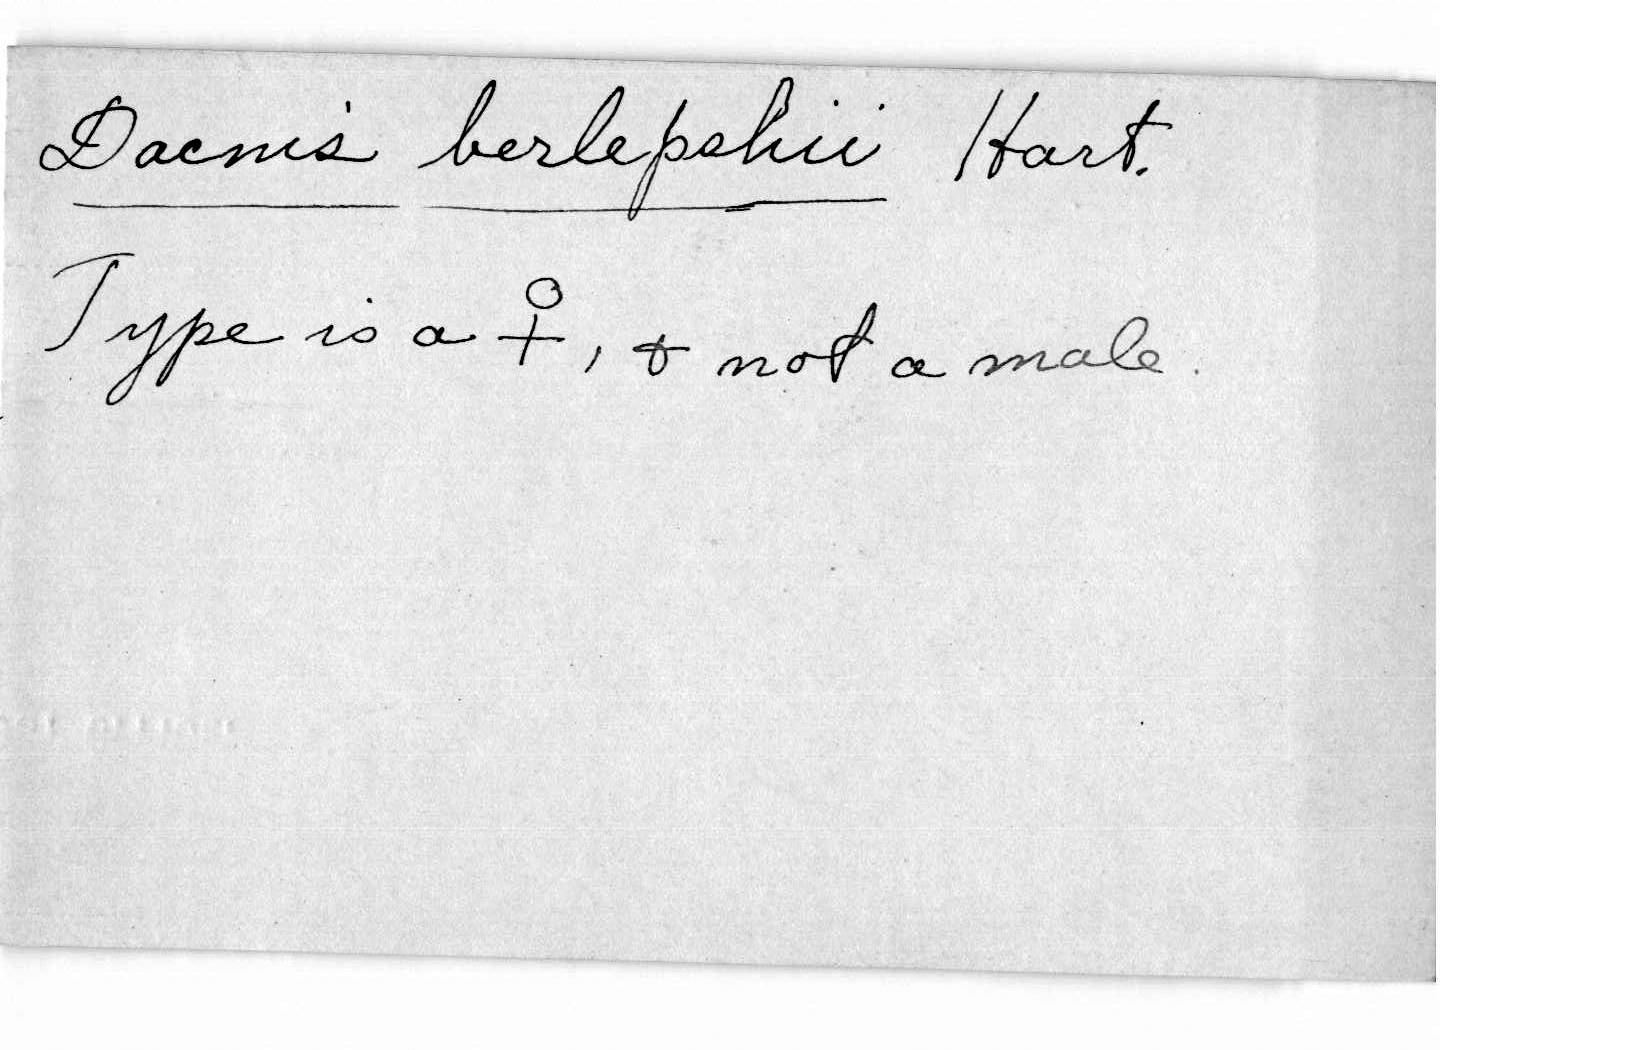 Dacnis berlepshii Hart.
Type is a ♀, & not a male.